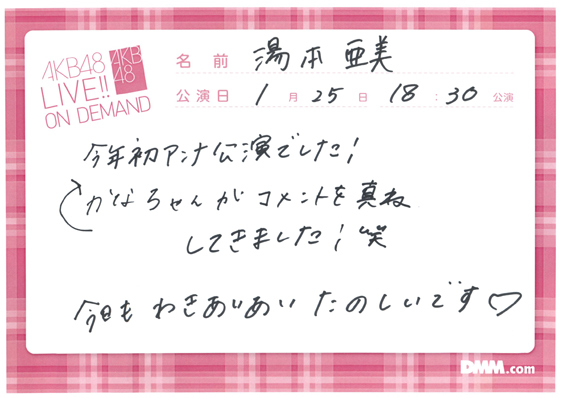 AKB48
LIVE!!
ON DEMAND
AKB
48
名前 湯本亜美
公演日 1月25日 18:30公演
今年初アンナ公演でした!
かなちゃんがコメントを真ね
してきました!笑
今日もわきあいあいたのしいです♡
DMM.com